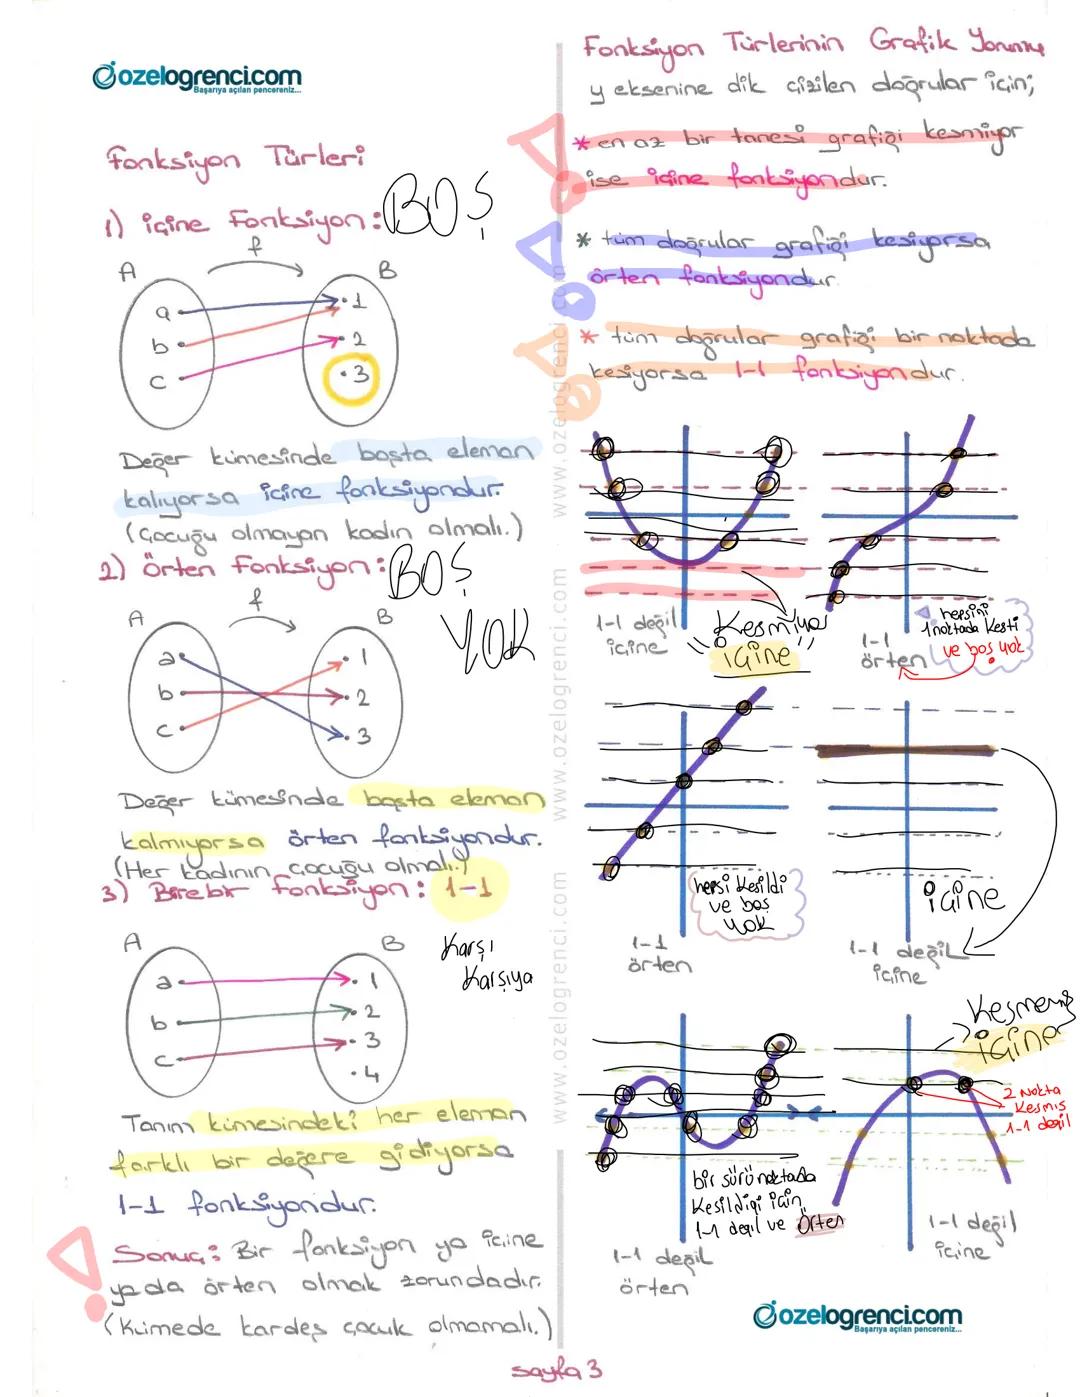 ozelogrenci.com
Başarıya açılan pencereniz...
Fonksiyon Türleri
1) içine Fonksiyon: BOŞ
f
A
B
a
b
c
1
2
3
Değer kümesinde boşta eleman
kalıyorsa içine fonksiyondur.
(Çocuğu olmayan kadın olmalı.)
2) Örten Fonksiyon: BOŞ
YOK
f
A
B
a
b
c
1
2
3
Değer kümesinde boşta eleman
kalmıyorsa örten fonksiyondur.
(Her kadının çocuğu olmalı.)
3) Birebir fonksiyon: 1-1
Karşı
Karşıya
A
B
a
b
c
1
2
3
4
Tanım kümesindeki her eleman
farklı bir değere gidiyorsa
1-1 fonksiyondur.
Sonuç: Bir fonksiyon ya içine
ya da örten olmak zorundadır.
(Kümede kardeş çocuk olmamalı.)
www.ozelogrenci.com www.ozelogrenci.com www.ozelogrenci.com
Fonksiyon Türlerinin Grafik Yorumu
y eksenine dik çizilen doğrular için;
* en az bir tanesi grafiği kesmiyor
ise içine fonksiyondur.
* tüm doğrular grafiği kesiyorsa
örten fonksiyondur.
* tüm doğrular grafiği bir noktada
kesiyorsa 1-1 fonksiyondur.
1-1 değil
içine
Kesmiyor
içine
1-1
örten
hepsini
1 noktada kesti
ve boş yok
hepsi kesildi
ve boş
yok
1-1
örten
içine
1-1 değil
içine
bir sürü noktada
kesildiği için
1-1 değil ve Örten
1-1 değil
örten
Kesmemiş
içine
2 Nokta
kesmiş
1-1 değil
1-1 değil
içine
ozelogrenci.com
Başarıya açılan pencereniz...
sayfa 3